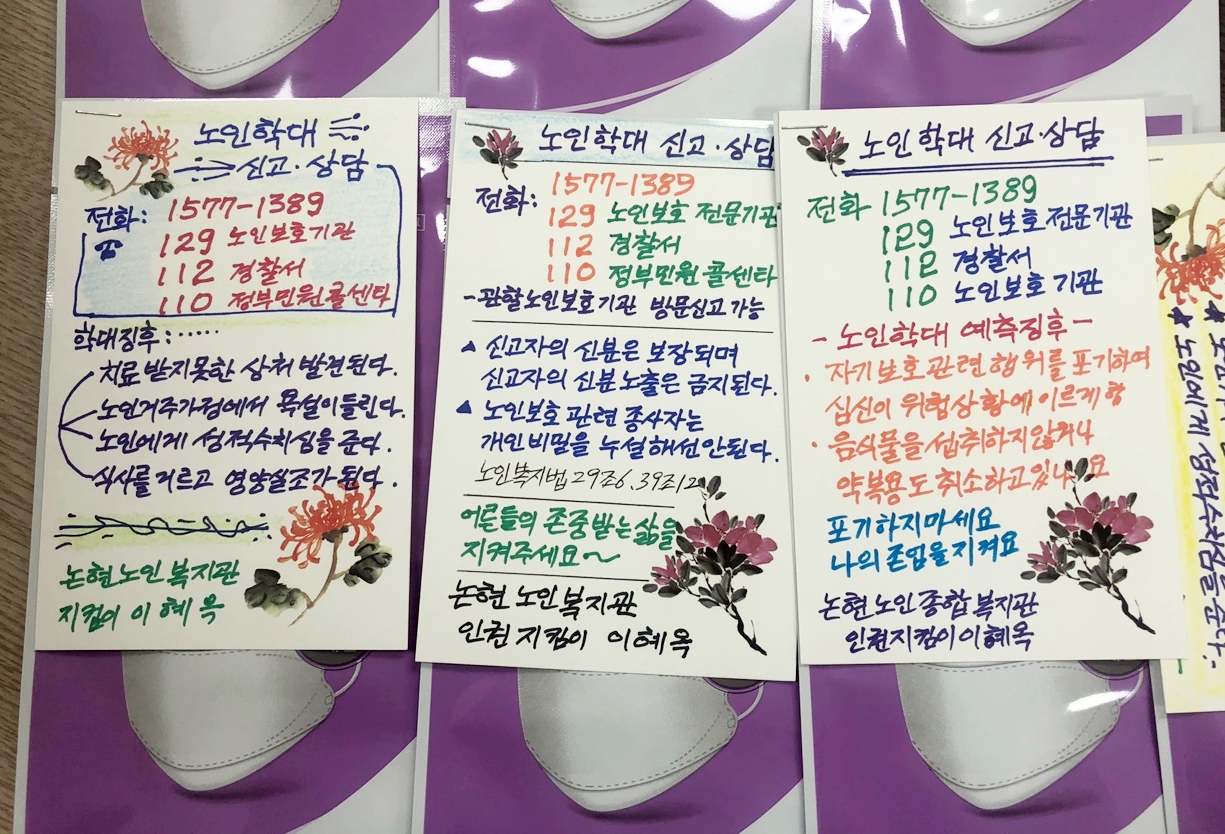 노인학대
신고·상담
전화: 1577-1389
129 노인보호기관
112 경찰서
110 정부민원콜센타
학대징후:······
치료받지못한 상처 발견된다.
노인거주가정에서 욕설이들린다.
노인에게 성적수치심을 준다.
식사를거르고 영양실조가 된다.
논현노인복지관
지킴이 이혜옥
노인학대 신고·상담
전화: 1577-1389
129 노인보호 전문기관
112 경찰서
110 정부민원콜센타
-관할노인보호기관 방문신고가능
▲ 신고자의 신분은 보장되며
신고자의 신분노출은 금지된다.
▲ 노인보호관련 종사자는
개인비밀을 누설해선안된다.
노인복지법 29조6.39조12
어른들의 존중받는삶을
지켜주세요~
논현노인복지관
인권지킴이 이혜옥
노인학대 신고·상담
전화 1577-1389
129 노인보호전문기관
112 경찰서
110 노인보호기관
-노인학대 예측징후-
· 자기보호관련행위를포기하여
심신이 위험상황에이르게함
· 음식물을섭취하지않거나
약복용도취소하고있나요
포기하지마세요
나의존엄을지켜요
논현노인종합복지관
인권지킴이이혜옥
★ 노인에게 성적수치심을준다.